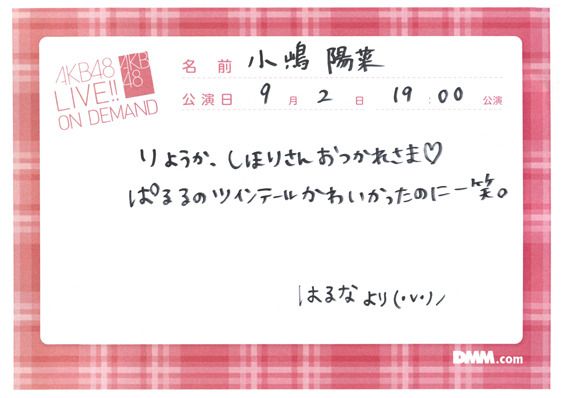 AKB48
LIVE!!
ON DEMAND
AKB
48
名前 小嶋 陽菜
公演日 9月 2日 19:00 公演
りょうか、しほりさんおつかれさま♡
ぱるるのツインテールかわいかったのに一笑。
はるなより(・v・)ノ
DMM.com